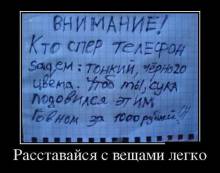 ВНИМАНИЕ!
Кто спер телефон
задем: тонкий, чёрного
цвета. Чтоб ты, сука
подовился этим
говном за 1000 рублей!!!
Расставайся с вещами легко